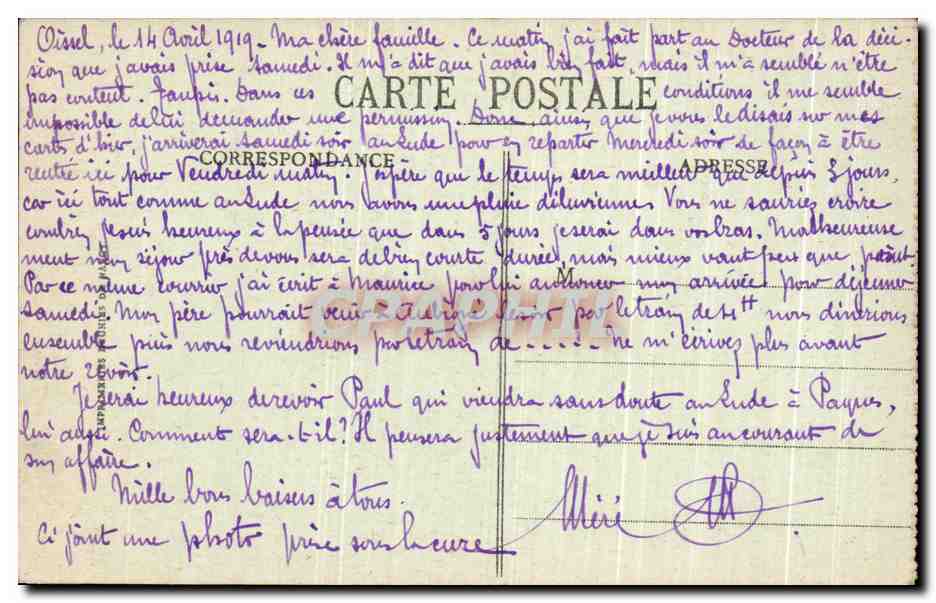 Oissel, le 14 Avril 1919 - Ma chère famille. Ce matin j'ai fait part au Docteur de la déci-
sion que j'avais prise samedi. Il m'a dit que j'avais bien fait, mais il m'a semblé n'être
pas content. Dans ces conditions il me semble
CARTE POSTALE
impossible de lui demander une permission. Donc ainsi que je vous le disais sur mes
cartes d'hier, j'arriverai samedi soir au Lude pour en repartir Mercredi soir de façon à être
CORRESPONDANCE
ADRESSE
rentré ici pour Vendredi matin. J'espère que le temps sera meilleur que depuis 3 jours,
car ici tout comme au Lude nous avons une pluie diluvienne. Vous ne sauriez croire
combien je suis heureux à la pensée que dans 5 jours je serai dans vos bras. Malheureuse
ment mon séjour près de vous sera de bien courte durée, mais mieux vaut peu que point.
M
Par ce même courrier j'ai écrit à Maurice pour lui annoncer mon arrivée pour déjeuner
CPAPHIL
samedi. Mon père pourrait venir par le train de 11H nous dinerions
ensemble puis nous reviendrions par le train de ...... ne m'écrivez plus avant
notre revoir.
Je serai heureux de revoir Paul qui viendra sans doute au Lude à Paques,
lui aussi. Comment sera-t-il? Il pensera justement que je suis au courant de
son affaire.
Mille bons baisers à tous.
Méré
Ci joint une photo prise sous la cure
IMPRIMERIES REUNIES DE NANCY